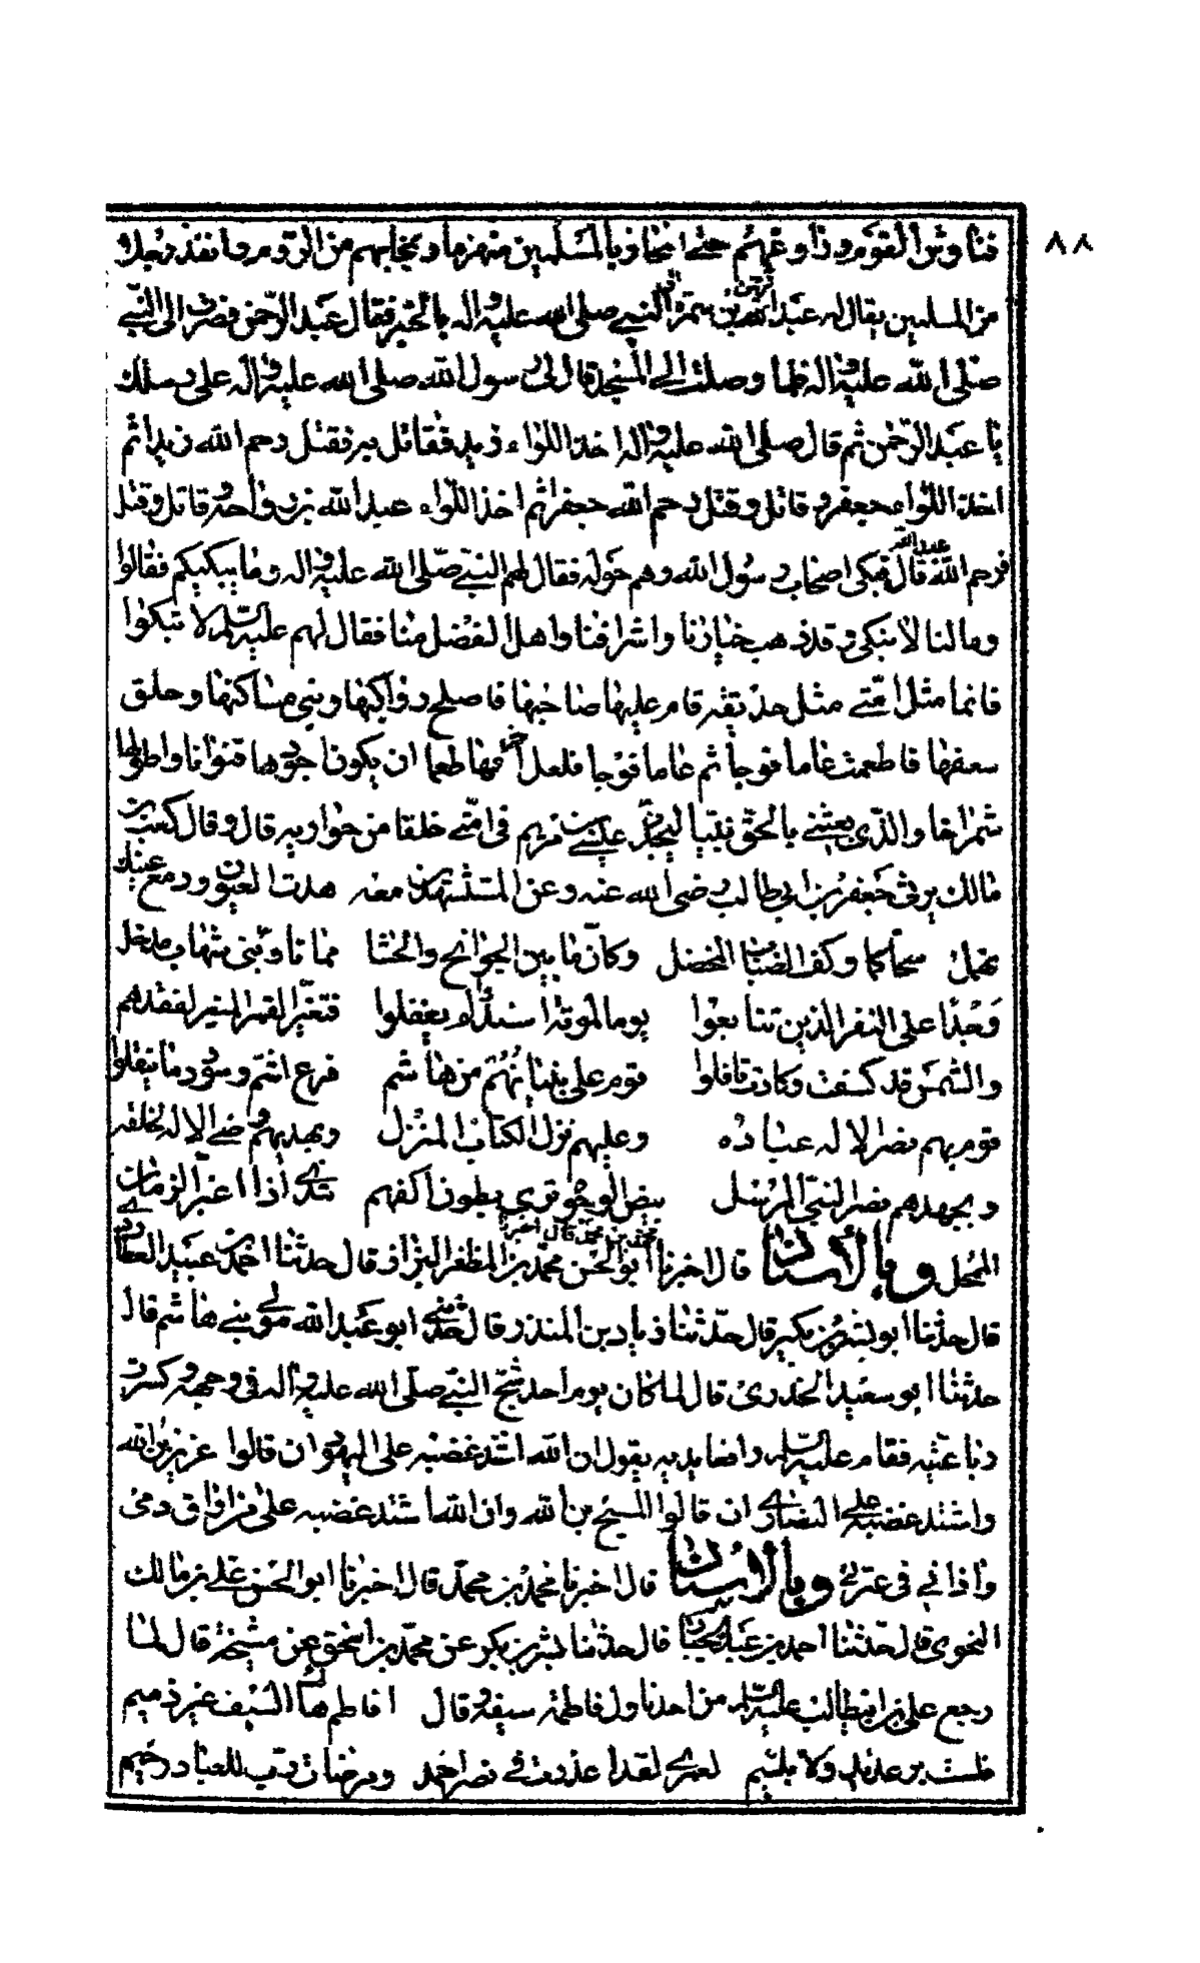 ٨٨
فناوش القوم وراوغهم حتى انحاز بالمسلمين منهزما ونجا بهم من الروم وانفذ رجلا
من المسلمين يقال له عبد الرحمن بن سمرة الى النبي صلى الله عليه واله بالخبر فقال عبد الرحمن فصرت الى النبي
صلى الله عليه واله فلما وصلت الى المسجد قال لى رسول الله صلى الله عليه واله على رسلك
يا عبد الرحمن ثم قال صلى الله عليه واله اخذ اللواء زيد فقاتل به فقتل رحم الله زيدا ثم
اخذ اللواء جعفر وقاتل وقتل رحم الله جعفرا ثم اخذ اللواء عبد الله بن رواحه وقاتل وقتل
فرحم الله عبد الله قال فبكى اصحاب رسول الله وهم حوله فقال لهم النبي صلى الله عليه واله وما يبكيكم فقالوا
ومالنا لا نبكى وقد ذهب خيارنا واشرافنا واهل الفضل منا فقال لهم عليه السلم لا تبكوا
فانما مثل امتى مثل حديقه قام عليها صاحبها فاصلح رواكبها وبنى مساكنها وحلق
سعفها فاطعمت عاما فوجا ثم عاما فوجا فلعل اخرها طعما ان يكون اجودها قنوانا واطولها
شمراخا والذى بعثنى بالحق نبيا ليجدن عيسى بن مريم فى امتى خلقا من حواريه قال وقال كعب بن
مالك يرثى جعفر بن ابى طالب رضى الله عنه وعن المستشهدين معه هدت العيون ودمع عينك
يهمل سحا كما وكف الضباب المخضل وكان ما بين الجوانح والحشا مما تاوبنى شهاب مدخل
وجدا على النفر الذين تتابعوا يوما بموته اسندوا لم يغفلوا فتغير القمر المنير لفقدهم
والشمس قد كسفت وكادت تافلوا قوم على بنيانهم من هاشم فرع اشم وسودد ما ينقلوا
قوم بهم نصر الاله عباده وعليهم نزل الكتاب المنزل وبهديهم رضى الاله لخلقه
وبجهدهم نصر النبى المرسل بيض الوجوه ترى بطون اكفهم تندى اذا اغبر الزمان
الممحل وبالاسناد قال اخبرنا محمد بن محمد قال اخبرنا ابو الحسن محمد بن المظفر البزاز قال حدثنا احمد بن عبيد العطاردى
قال حدثنا ابو بشر بن بكير قال حدثنا زياد بن المنذر قال حدثنى ابو عبد الله مولى بنى هاشم قال
حدثنا ابو سعيد الخدرى قال لما كان يوم احد شج النبي صلى الله عليه واله فى وجهه وكسرت
رباعيته فقام عليه السلم رافعا يديه يقول ان الله اشتد غضبه على اليهود ان قالوا عزير بن الله
واشتد غضبه على النصارى ان قالوا المسيح بن الله وان الله اشتد غضبه على من اراق دمى
واذانى فى عترتى وبالاسناد قال اخبرنا محمد بن محمد قال اخبرنا ابو الحسن على بن مالك
النحوى قال حدثنا احمد بن عبد الجبار قال حدثنا بشر بن بكر عن محمد بن اسحق عن مشيخته قال لما
رجع على بن ابيطالب عليه السلم من احد ناول فاطمة سيفه وقال افاطم هاك السيف غير ذميم
فلست برعديد ولا بلئيم لعمرى لقد اعذرت فى نصر احمد ومرضات رب للعباد رحيم